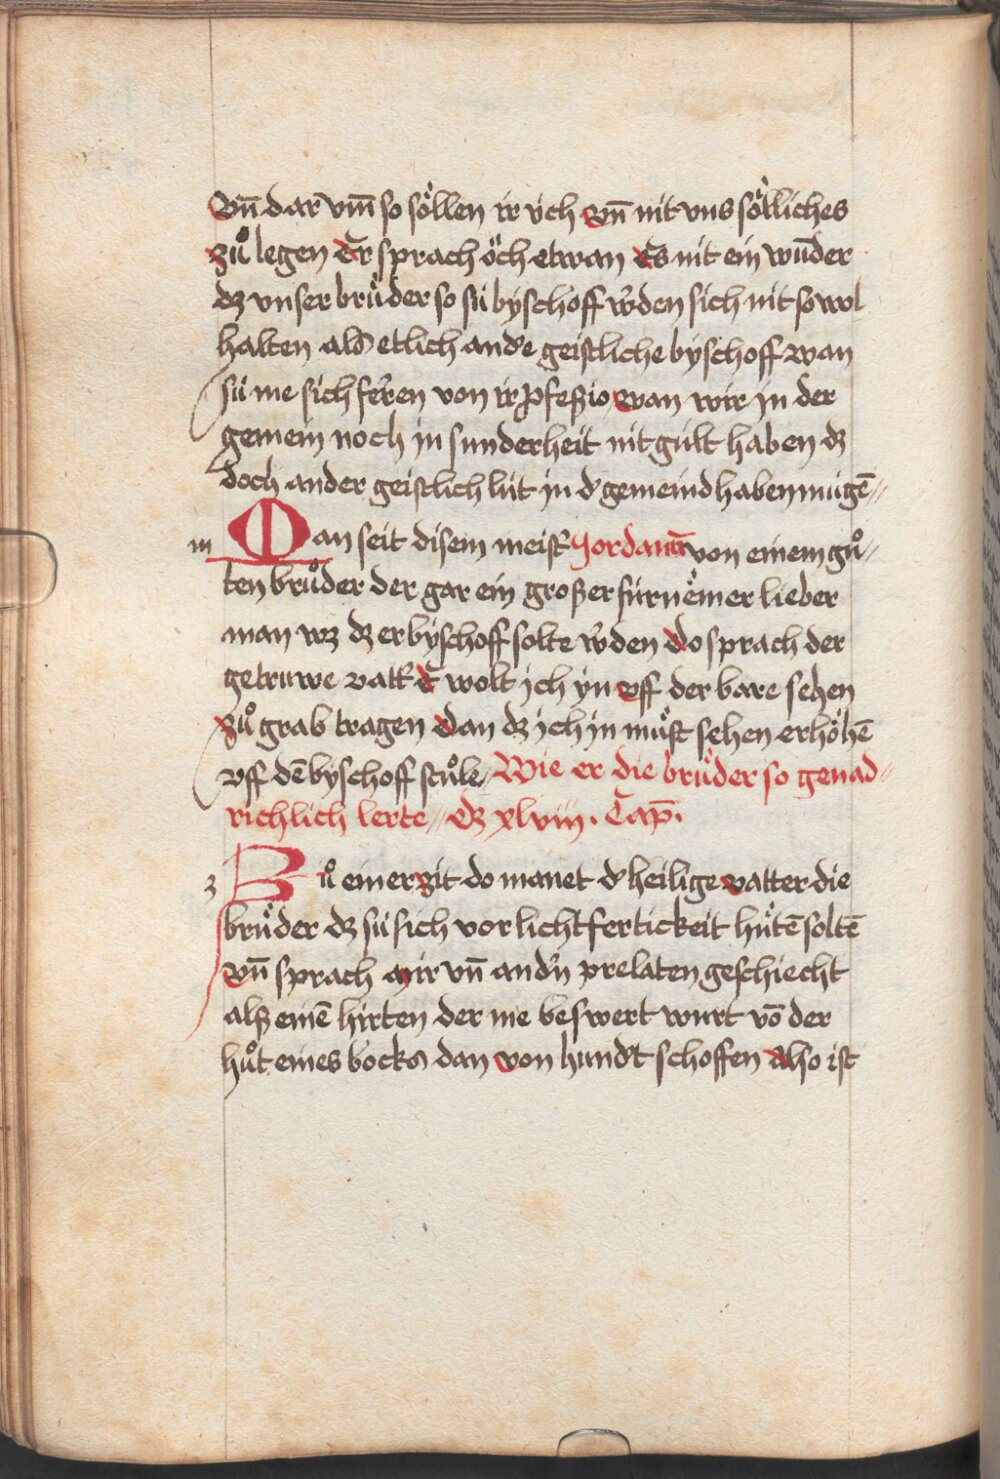 Vn̄ dar vm̄ so sǒllen ir v̈ch vn̄ nit vns sǒlliches
Zů legen Er sprach öch etwan Es nit ein wūder
dz vnser brüder so sü byschoff w̓den sich nit so wol
halten als etlich and̓e geistliche byschoff wan
sü me sich feren von ir ꝓfeßio wan wir jn der
gemein noch jn sunderheit nit gült haben dz
doch ander geistlich lüt jn d̓ gemeind haben mügē//
m Man seit disem meist̓ Jordanū von einem gů//
ten brůder der gar ein großer fürnëmer lieber
man wz dz er byschoff solte w̓den do sprach der
getruwe vatt̓ E wolt jch yn vff der bare sehen
Zů grab tragen dan dz jch jn můst sehen erhöhē
vff dē byschoff stůle Wie er die brüder so genad//
richlich lerte// dz xlviii. Cap̄.
z Zů einer zit do manet d̓ heilige vatter die
brüder dz sü sich vor lichtfertickeit hütē soltē
vn̄ sprach mir vn̄ and̓n prelaten geschiecht
alß einē hirten der me beswert wurt vō der
hůt eines bocks dan von hund̓t schoffen Also ist